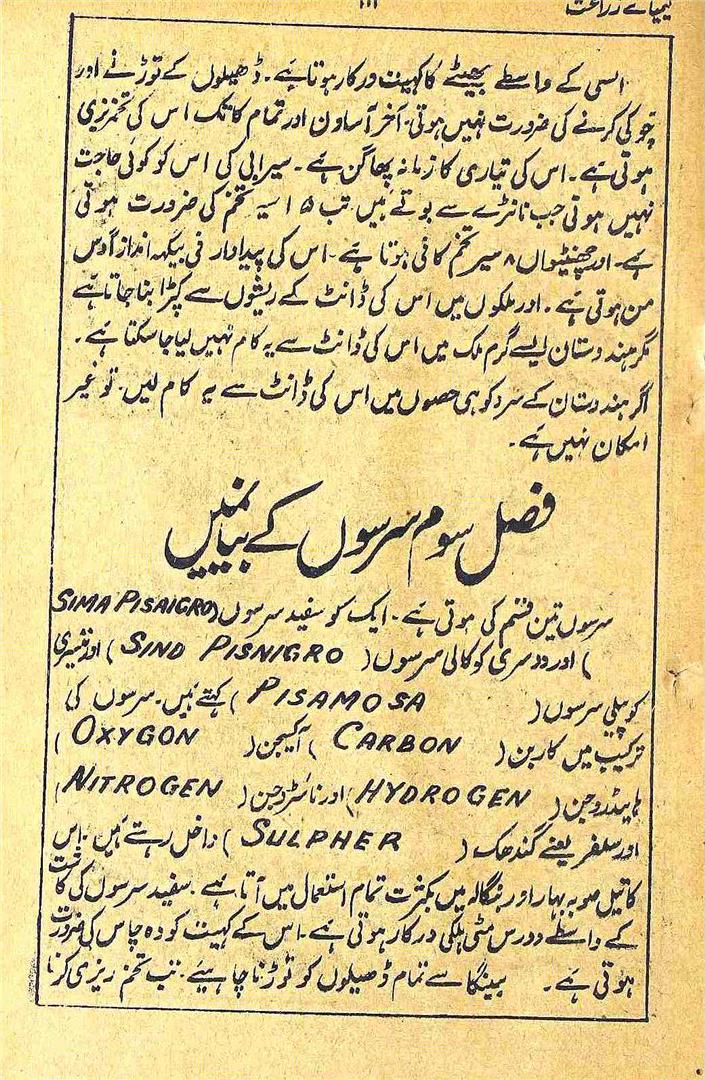 کیمیائے زراعت
اسی کے واسطے بھیٹے کا کہیت ورکار ہوتا ہے۔ ڈھیلوں کے توڑنے اور
چوکی کرنے کی ضرورت نہیں ہوتی۔ آخر آساون اور تمام کاتک اس کی تخمریزی
ہوتی ہے۔ اس کی تیاری کا زمانہ پھاگن ہے۔ سیرابی کی اس کو کوئی حاجت
نہیں ہوتی جب نانڑے سے بوتے ہیں تب ۱۵ سیر تخم کی ضرورت ہوتی
ہے۔ اور چھنٹیواں ۸ سیر تخم کافی ہوتا ہے۔ اس کی پیداوار فی بیگہہ اندازاً دس
من ہوتی ہے۔ اور ملکوں میں اس کی ڈانٹ کے ریشوں سے کپڑا بنا جاتا ہے
مگر ہندوستان ایسے گرم ملک میں اس کی ڈانٹ سے یہ کام نہیں لیا جا سکتا ہے۔
اگر ہندوستان کے سرد کوہی حصوں میں اس کی ڈانٹ سے یہ کام لیں۔ تو غیر
امکان نہیں ہے۔
فصل سوم سرسوں کے بیانمیں
سرسوں تین قسم کی ہوتی ہے۔ ایک کو سفید سرسوں (SIMA PISAIGRO
) اور دوسری کو کالی سرسوں (SIND PISNIGRO) اور تیسری
کو پیلی سرسوں (PISAMOSA) کہتے ہیں۔ سرسوں کی
ترکیب میں کاربن (CARBON) آکسیجن (OXYGON)
ہائیڈروجن (HYDROGEN) اور نائٹروجن (NITROGEN)
اور سلفر یعنے گندھک (SULPHER) داخل رہتے ہیں۔ اس
کا تیل صوبہ بہار اور بنگالہ میں بکثرت تمام استعمال میں آتا ہے۔ سفید سرسوں کی کاشت
کے واسطے دورس مٹی ہلکی درکار ہوتی ہے۔ اس کے کہیت کو دہ چاس کی ضرورت
ہوتی ہے۔ بینگا سے تمام ڈھیلوں کو توڑنا چاہیے۔ تب تخم ریزی کرنا